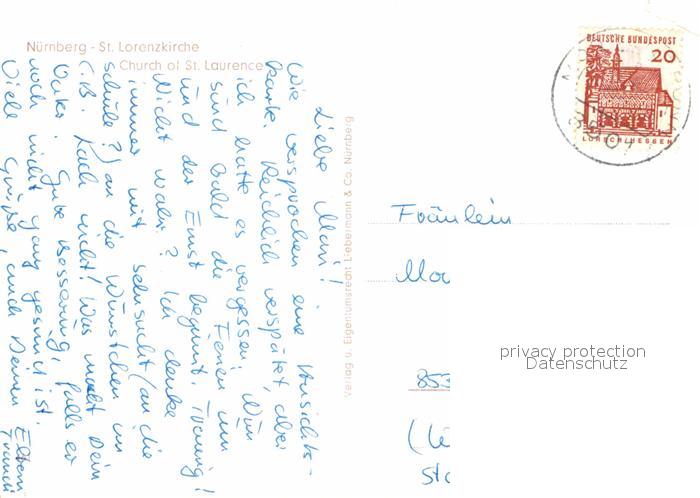 Nürnberg - St. Lorenzkirche
Church of St. Laurence
Liebe Mani!
Wie versprochen eine Ansichts-
karte. Reichlich verspätet, aber
ich hatte es vergessen! Nun
sind bald die Ferien um
und der Ernst beginnt. Traurig!
Nicht wahr? Ich denke
immer mit Sehnsucht (an die
Schule?) an die Würstchen im
Lach nicht! Was macht Dein
Gute Besserung, falls er
noch nicht ganz gesund ist.
Viele Grüße, auch Deinen Eltern
Traudi
Verlag u. Eigentumsrecht Liebermann & Co. Nürnberg
DEUTSCHE BUNDESPOST
20
LORSCH/HESSEN
Fräulein
853
privacy protection
Datenschutz